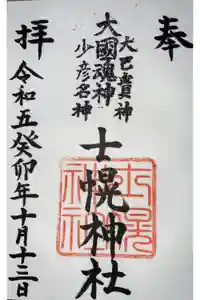 奉
大國魂神
大己貴神
少彦名神
士幌神社
拝
令和五癸卯年十月十三日
士幌神社